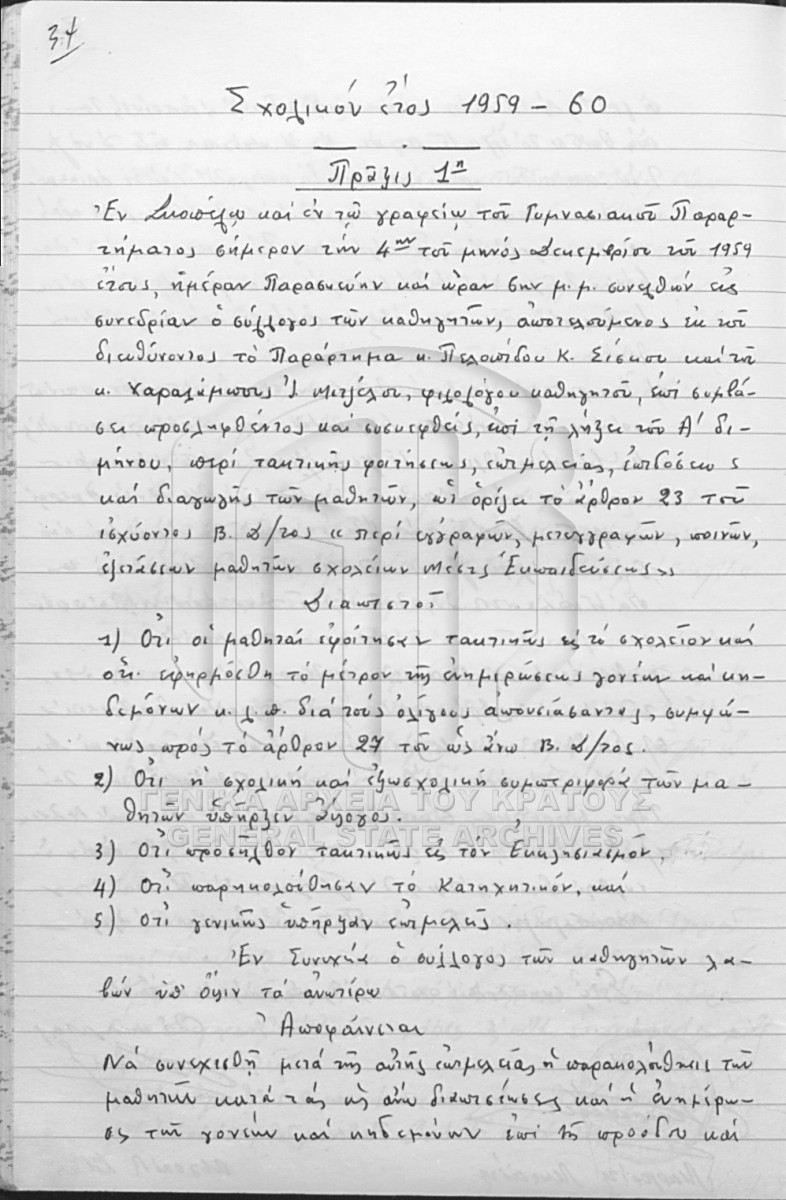 34
Σχολικόν ἔτος 1959 – 60
Πρᾶξις 1η
Ἐν Σκοπέλῳ καί ἐν τῷ γραφείῳ τοῦ Γυμνασιακοῦ Παραρ-
τήματος σήμερον τήν 4ην τοῦ μηνός Δεκεμβρίου τοῦ 1959
ἔτους, ἡμέραν Παρασκευήν καί ὥραν 5ην μ.μ. συνελθών εἰς
συνεδρίαν ὁ σύλλογος τῶν καθηγητῶν, ἀποτελούμενος ἐκ τοῦ
διευθύνοντος τό Παράρτημα κ. Πελοπίδου Κ. Σίσκου καί τοῦ
κ. Χαραλάμπους Ἰ. Μετζέλου, φιλολόγου καθηγητοῦ, ἐπί συμβά-
σει προσληφθέντος καί συσκεφθείς, ἐπί τῇ λήξει τοῦ Α' δι-
μήνου, περί τακτικῆς φοιτήσεως, ἐπιμελείας, ἐπιδόσεως
καί διαγωγῆς τῶν μαθητῶν, ὡς ὁρίζει τό ἄρθρον 23 τοῦ
ἰσχύοντος Β. Δ/τος « περί ἐγγραφῶν, μετεγγραφῶν, ποινῶν,
ἐξετάσεων μαθητῶν σχολείων Μέσης Ἐκπαιδεύσεως»
Διαπιστοῖ
1) Ὅτι οἱ μαθηταί ἐφοίτησαν τακτικῶς εἰς τό σχολεῖον καί
ὅτι ἐφηρμόσθη τό μέτρον τῆς ἐνημερώσεως γονέων καί κη-
δεμόνων κ.λ.π. διά τούς ὀλίγους ἀπουσιάσαντας, συμφώ-
νως πρός τό ἄρθρον 27 τοῦ ὡς ἄνω Β. Δ/τος.
2) Ὅτι ἡ σχολική καί ἐξωσχολική συμπεριφορά τῶν μα-
θητῶν ὑπῆρξεν ἄψογος.
ΓΕΝΙΚΑ ΑΡΧΕΙΑ ΤΟΥ ΚΡΑΤΟΥΣ
GENERAL STATE ARCHIVES
3) Ὅτι προσῆλθον τακτικῶς εἰς τόν Ἐκκλησιασμόν,
4) Ὅτι παρηκολούθησαν τό Κατηχητικόν, καί
5) Ὅτι γενικῶς ὑπῆρξαν ἐπιμελεῖς.
Ἐν Συνεχείᾳ ὁ σύλλογος τῶν καθηγητῶν λα-
βών ὑπ' ὄψιν τά ἀνωτέρω
Ἀποφαίνεται
Νά συνεχισθῇ μετά τῆς αὐτῆς ἐπιμελείας ἡ παρακολούθησις τῶν
μαθητῶν κατά τάς ὡς ἄνω διαπιστώσεις καί ἡ ἐνημέρω-
σις τῶν γονέων καί κηδεμόνων ἐπί τῆς προόδου καί